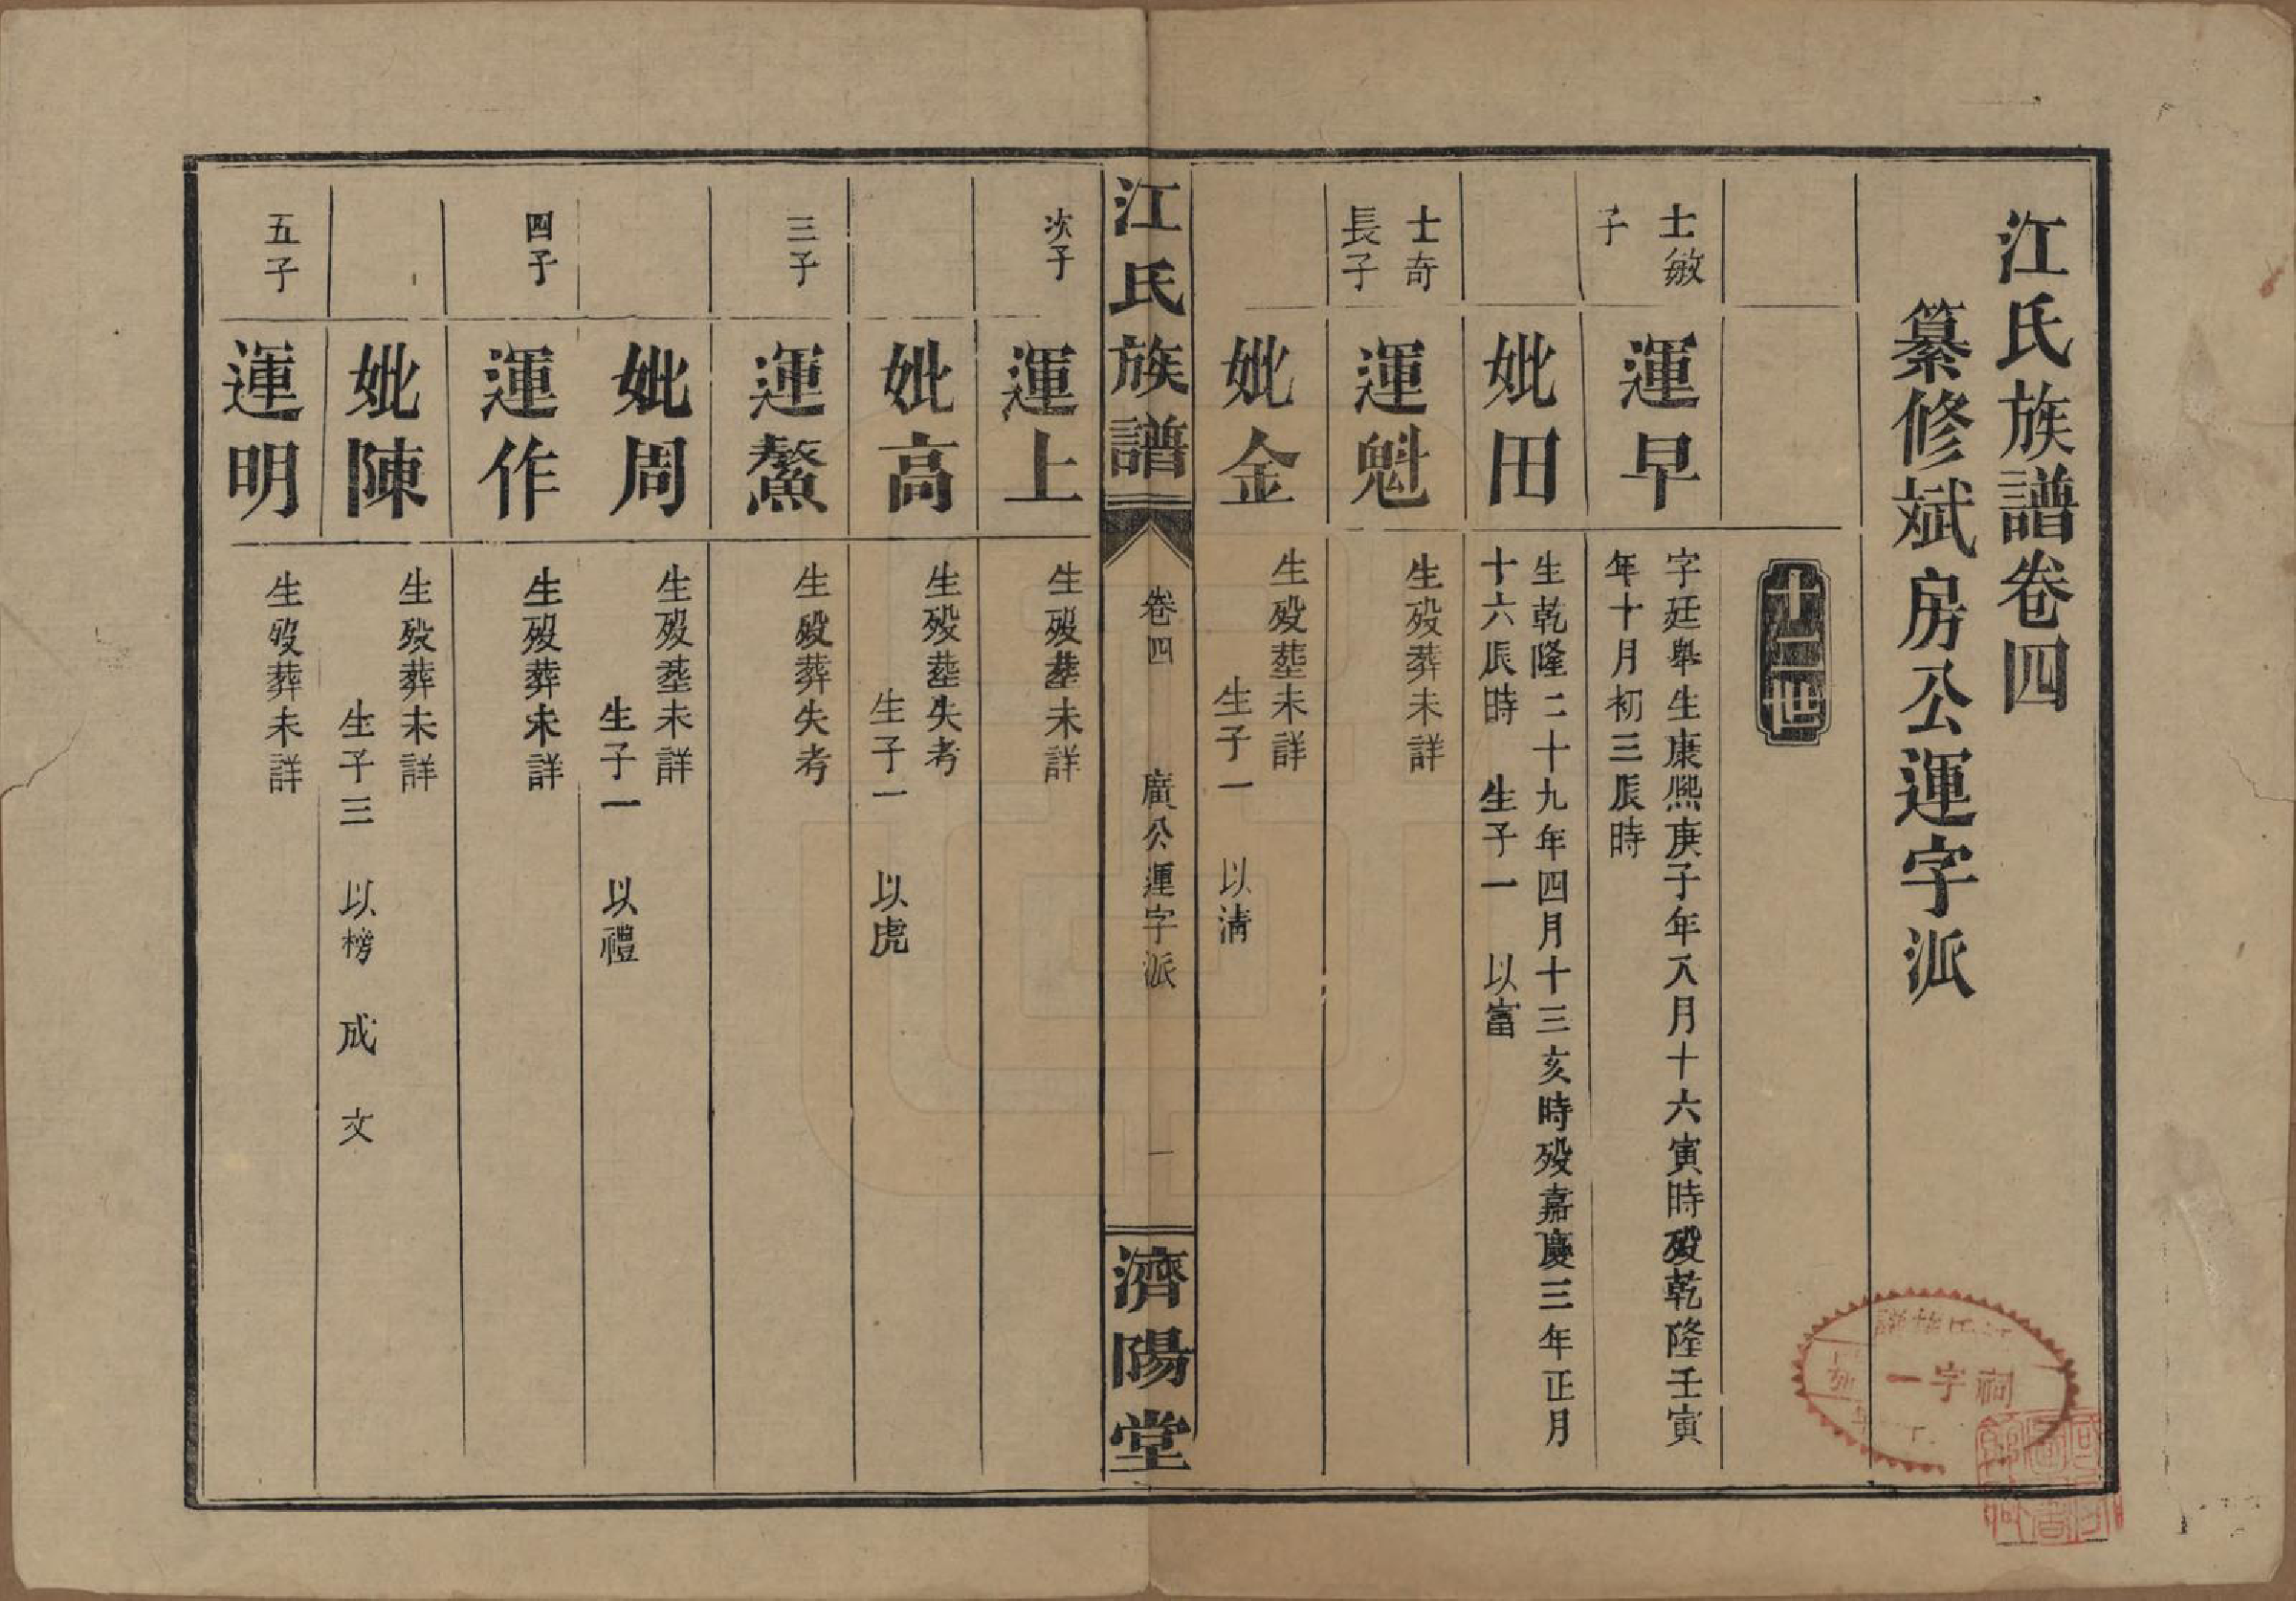 江氏族譜卷四
纂修斌房公運字派
十二世
士敏
子
運早
字廷舉生康熙庚子年八月十六寅時殁乾隆壬寅
年十月初三辰時
妣田
生乾隆二十九年四月十三亥時殁嘉慶三年正月
十六辰時 生子一 以富
士奇
長子
運魁
生殁葬未詳
妣金
生殁塟未詳
生子一 以清
江氏族譜 卷四 廣公運字派 一 濟陽堂
次子
運上
生殁塟未詳
妣高
生殁塟失考
生子一 以虎
三子
運鰲
生殁葬失考
妣周
生殁塟未詳
生子一 以禮
四子
運作
生殁葬未詳
妣陳
生殁葬未詳
生子三 以榜 成 文
五子
運明
生殁葬未詳
祠字一